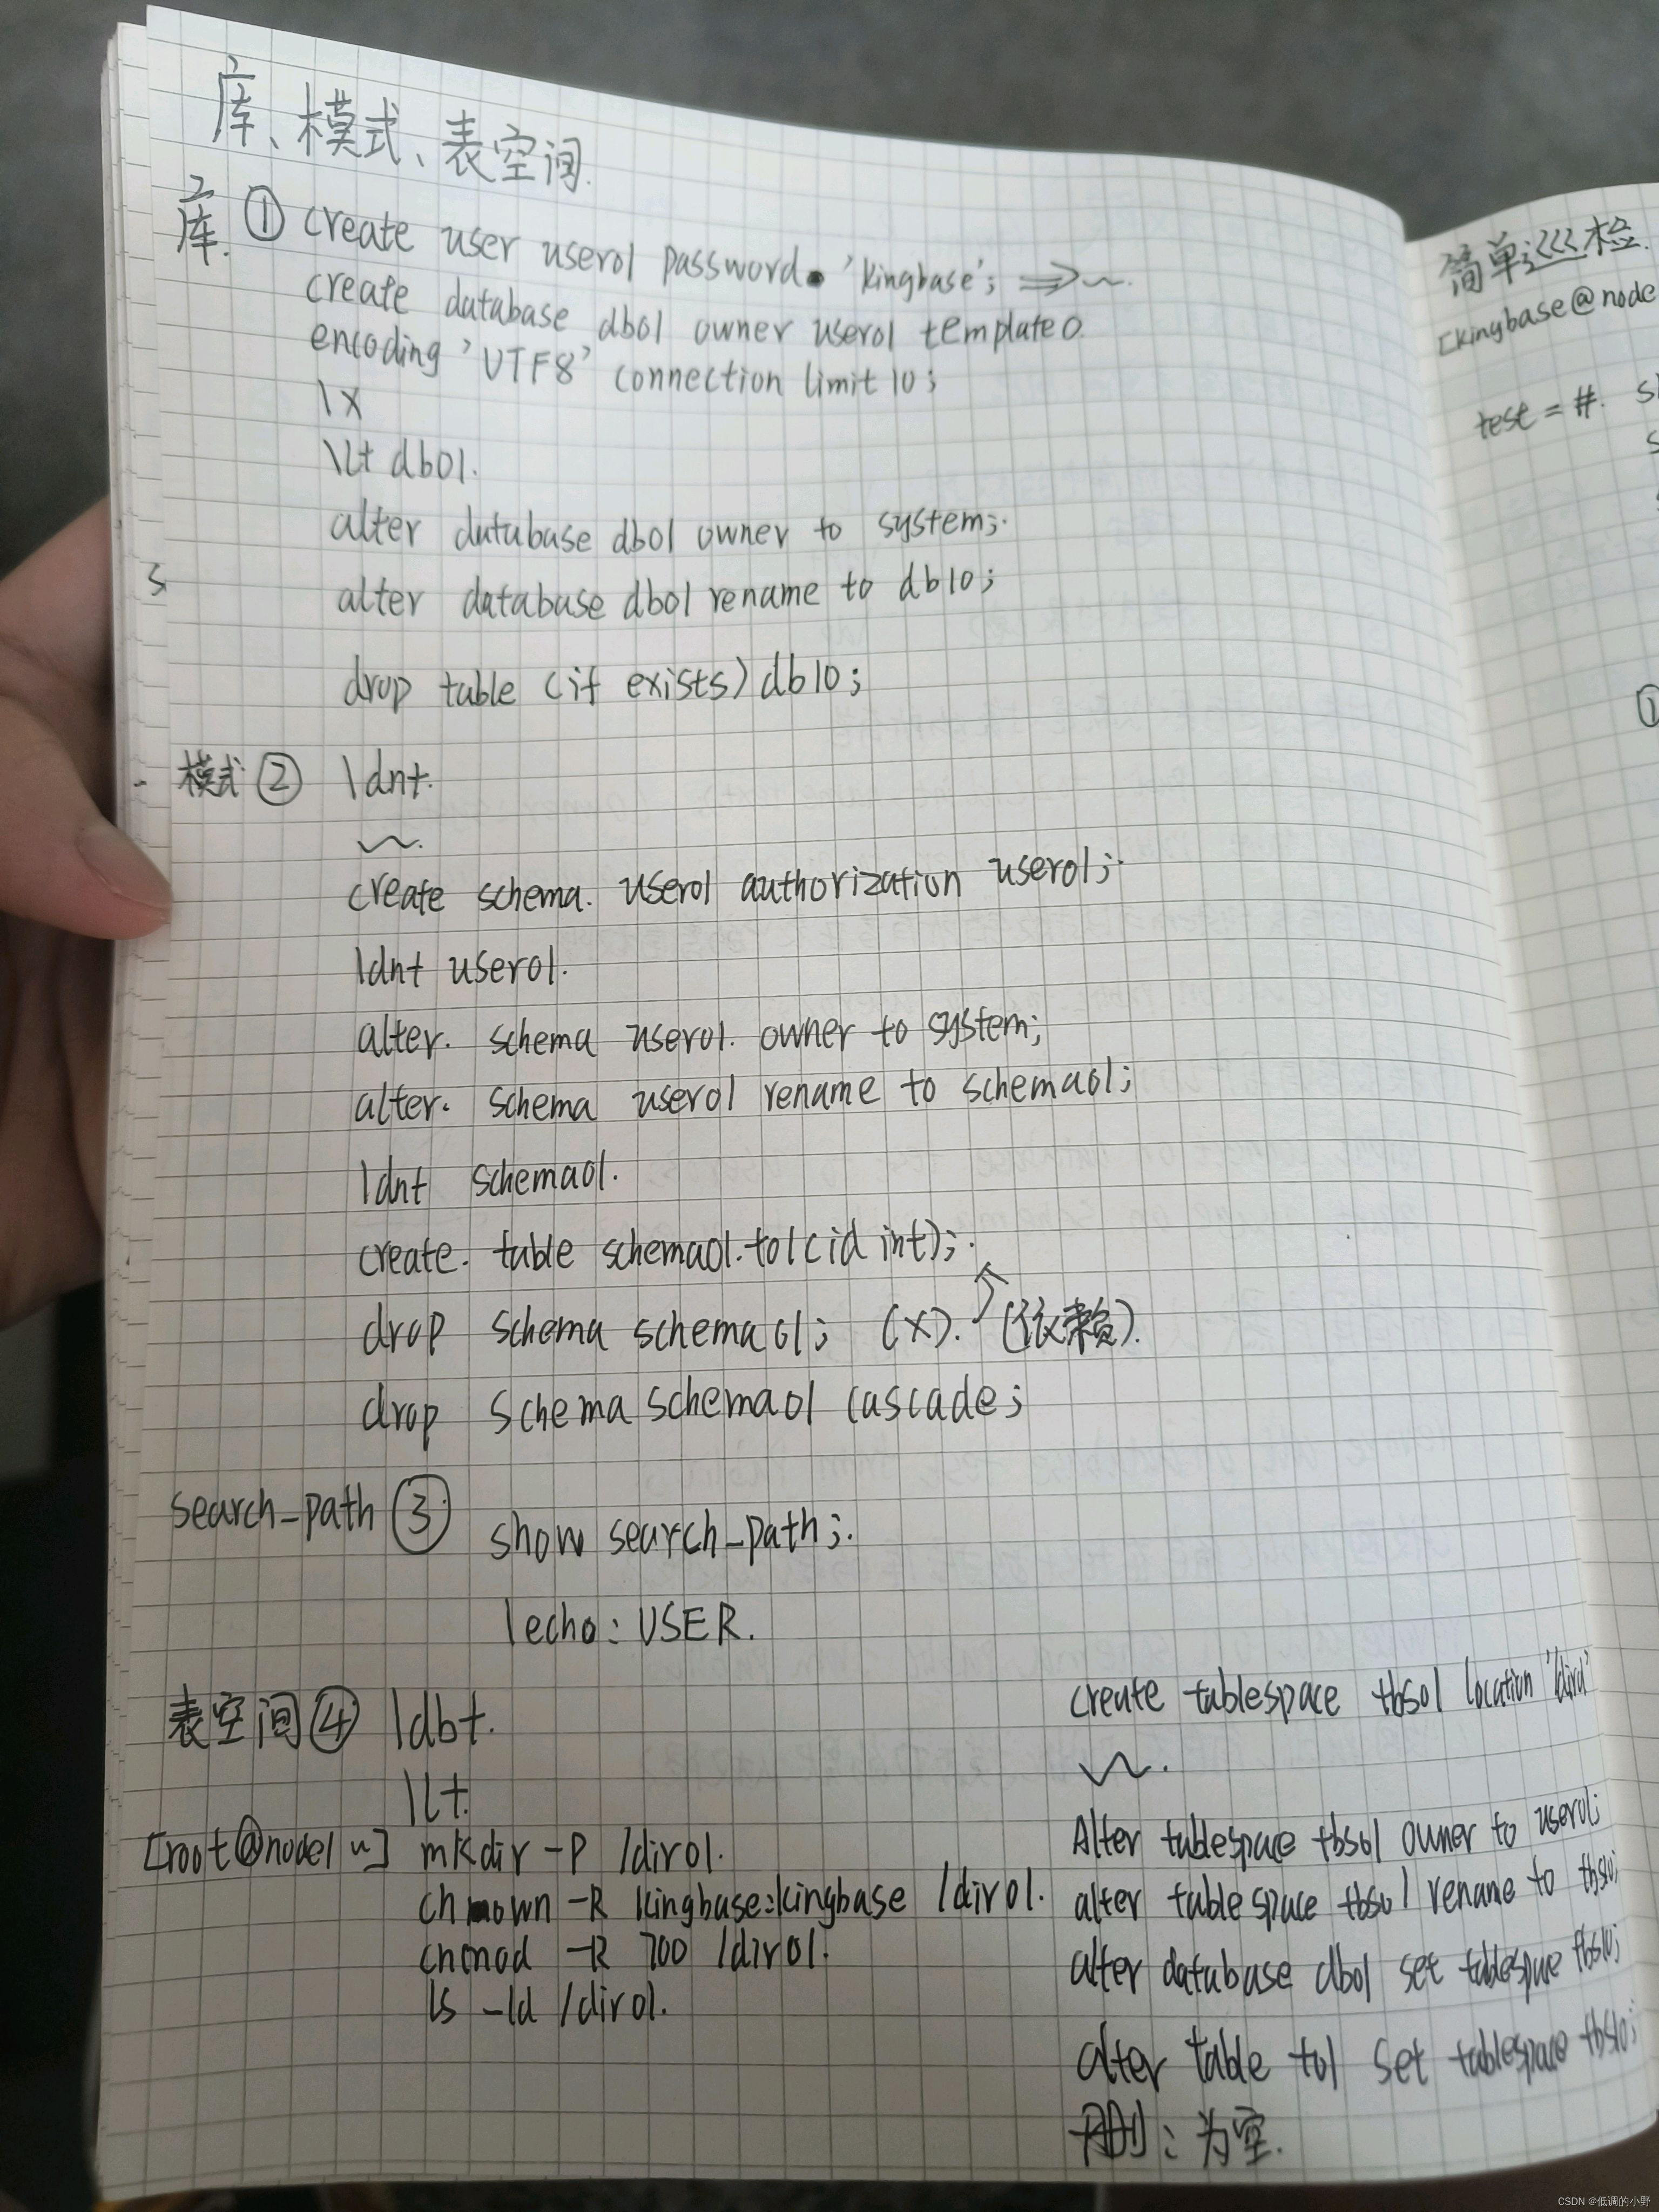 库、模式、表空间.
库. ① create user user01 password 'kingbase'; ⇒~.
create database db01 owner user01 template0
encoding 'UTF8' connection limit 10;
\x
\l+ db01.
alter database db01 owner to system;
alter database db01 rename to db10;
drop table (if exists) db10;
模式 ② \dn+.
~.
create schema. user01 authorization user01;
\dn+ user01.
alter. schema user01. owner to system;
alter. schema user01 rename to schema01;
\dn+ schema01.
create. table schema01.t01(id int);
drop schema schema01; (×). (依赖).
drop schema schema01 cascade;
search_path ③ show search_path;
\echo :USER.
表空间 ④ \db+.
\l+.
[root@node1 ~] mkdir -p /dir01.
chown -R kingbase:kingbase /dir01.
chmod -R 700 /dir01.
ls -ld /dir01.
create tablespace tbs01 location
~.
Alter tablespace tbs01 owner to user01;
alter tablespace tbs01 rename to tbs10;
alter database db01 set tablespace tbs10;
alter table t01 set tablespace tbs10;
删：为空.
简单巡检.
[kingbase@node
test=#.
①
CSDN @低调的小野